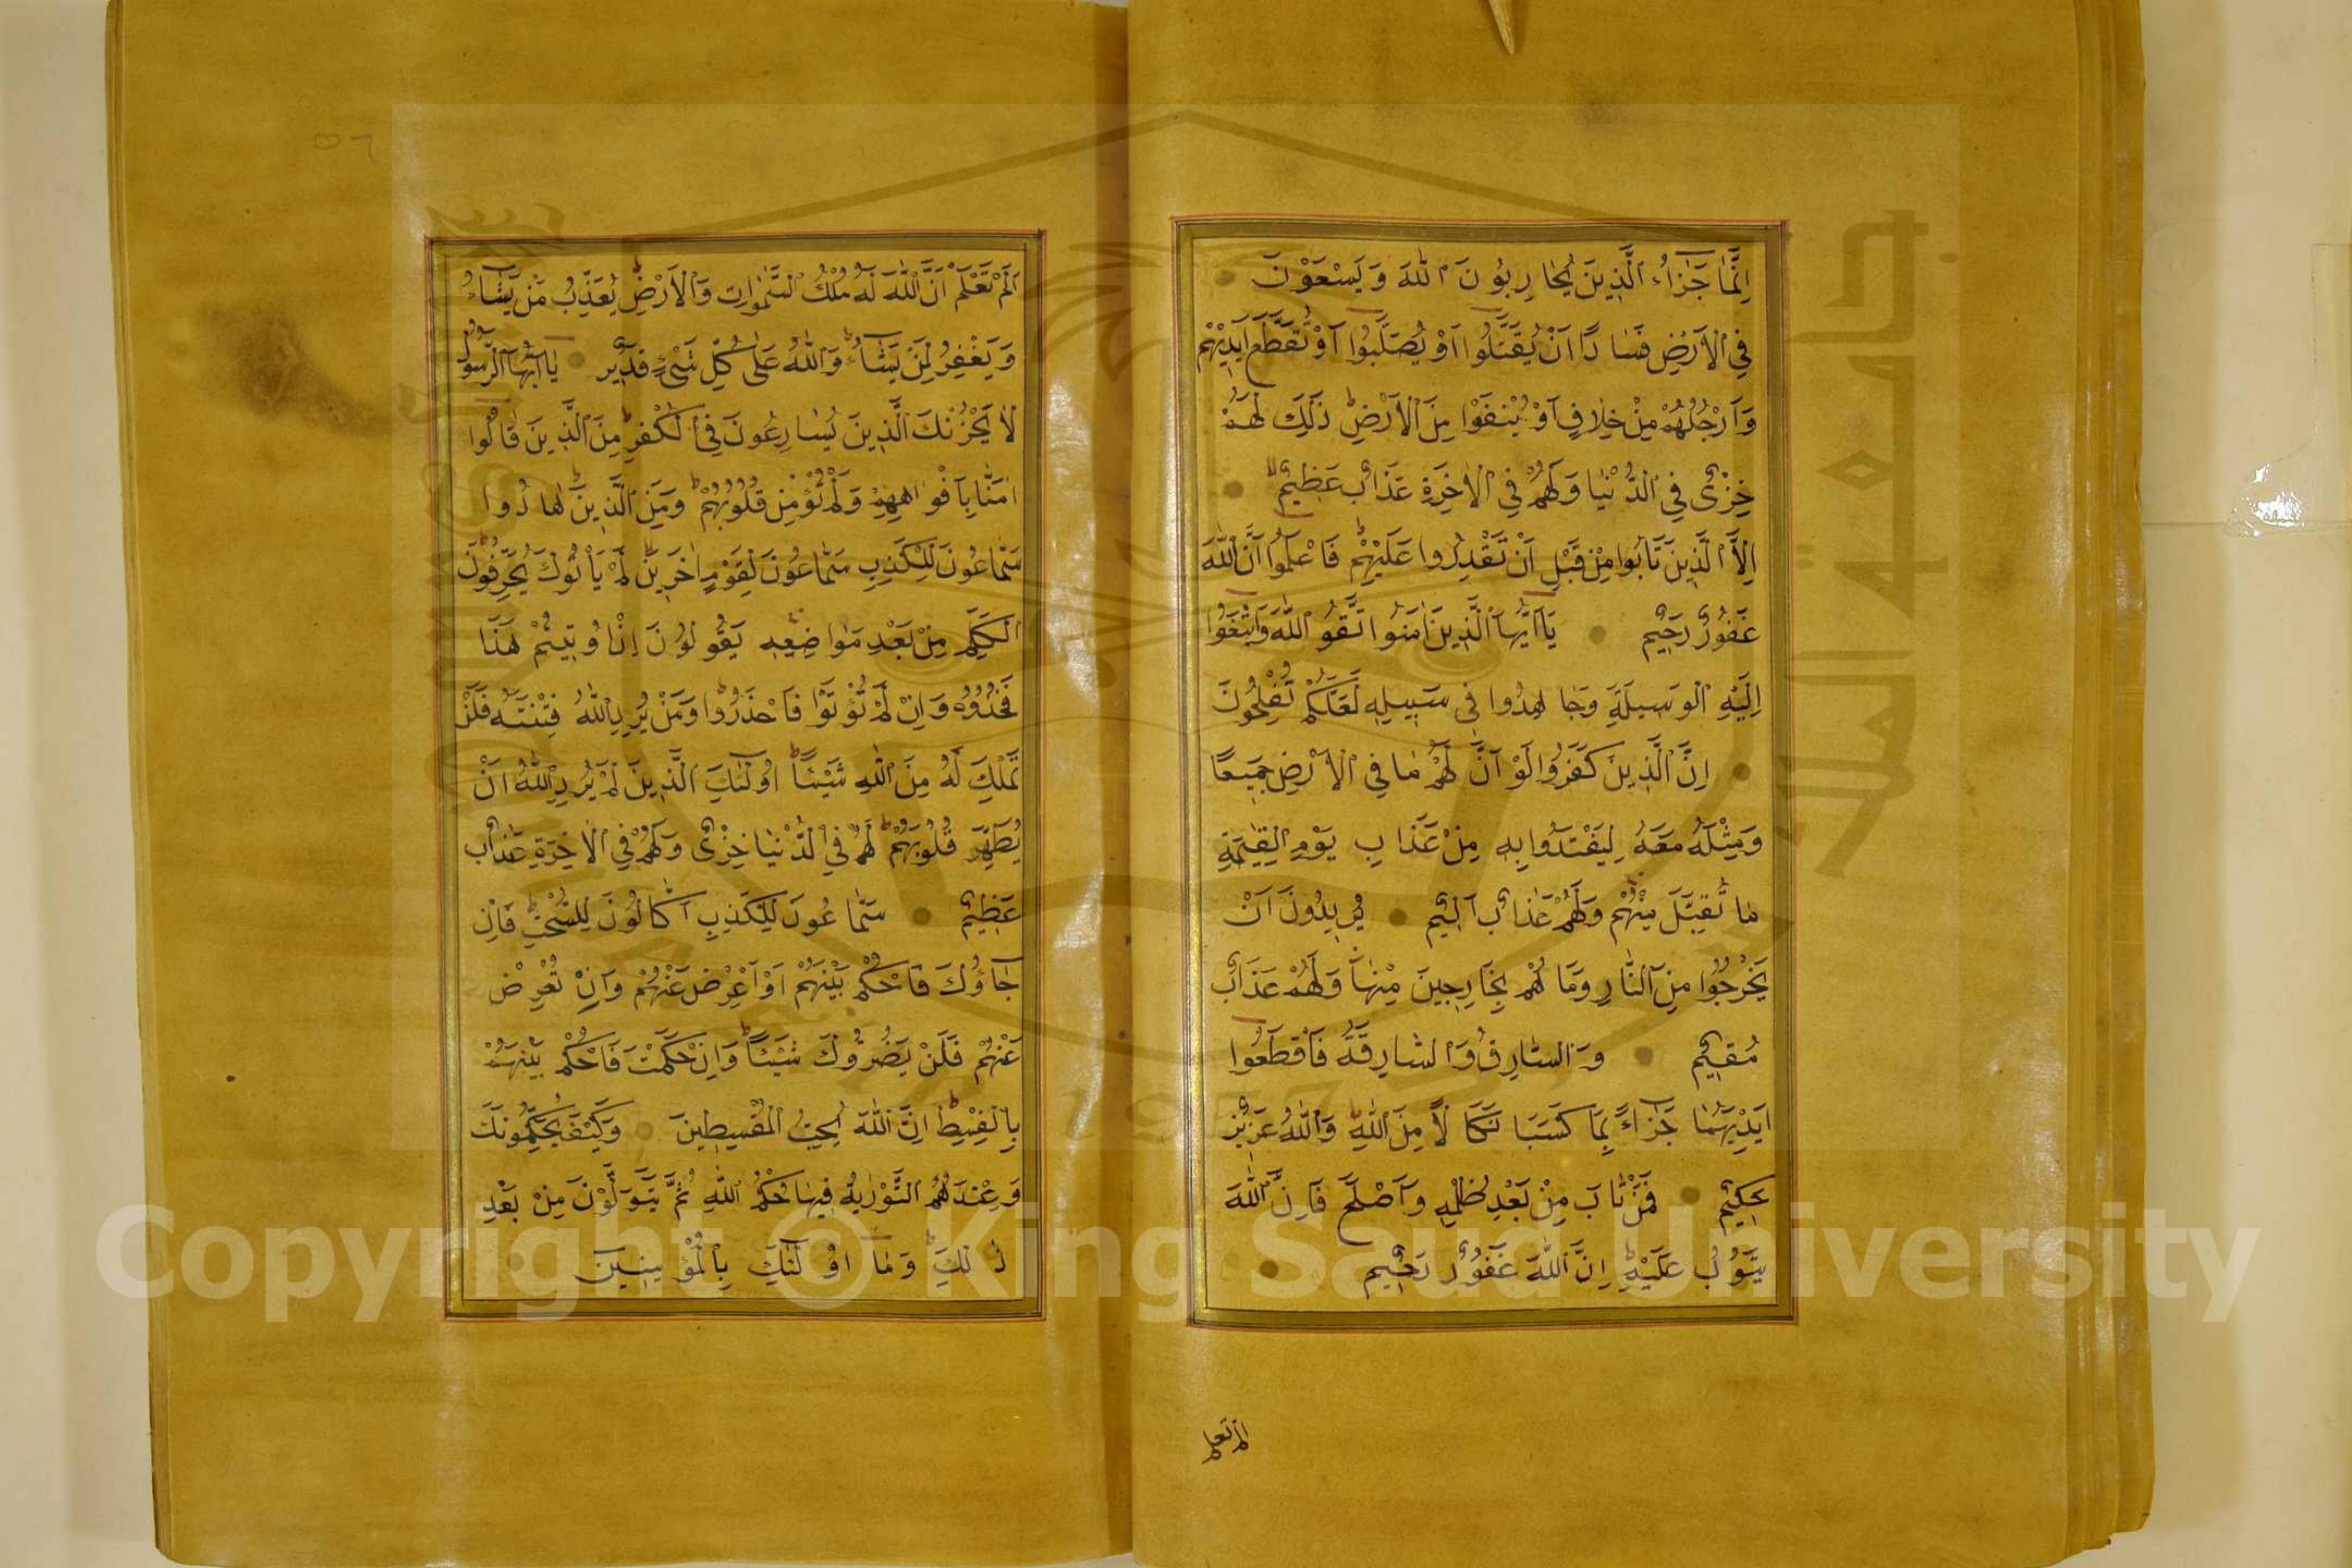 اِنَّمَا جَزٰٓاءُ الَّذِينَ يُحَارِبُونَ اللّٰهَ وَيَسْعَوْنَ
فِي الْاَرْضِ فَسَادًا اَنْ يُقَتَّلُوا اَوْ يُصَلَّبُوا اَوْ تُقَطَّعَ اَيْدِيهِمْ
وَاَرْجُلُهُمْ مِنْ خِلَافٍ اَوْ يُنْفَوْا مِنَ الْاَرْضِ ذٰلِكَ لَهُمْ
خِزْىٌ فِي الدُّنْيَا وَلَهُمْ فِي الْاٰخِرَةِ عَذَابٌ عَظِيمٌ
اِلَّا الَّذِينَ تَابُوا مِنْ قَبْلِ اَنْ تَقْدِرُوا عَلَيْهِمْ فَاعْلَمُوا اَنَّ اللّٰهَ
غَفُورٌ رَحِيمٌ يَا اَيُّهَا الَّذِينَ اٰمَنُوا اتَّقُوا اللّٰهَ وَابْتَغُوا
اِلَيْهِ الْوَسِيلَةَ وَجَاهِدُوا فِي سَبِيلِهِ لَعَلَّكُمْ تُفْلِحُونَ
اِنَّ الَّذِينَ كَفَرُوا لَوْ اَنَّ لَهُمْ مَا فِي الْاَرْضِ جَمِيعًا
وَمِثْلَهُ مَعَهُ لِيَفْتَدُوا بِهِ مِنْ عَذَابِ يَوْمِ الْقِيٰمَةِ
مَا تُقُبِّلَ مِنْهُمْ وَلَهُمْ عَذَابٌ اَلِيمٌ يُرِيدُونَ اَنْ
يَخْرُجُوا مِنَ النَّارِ وَمَا هُمْ بِخَارِجِينَ مِنْهَا وَلَهُمْ عَذَابٌ
مُقِيمٌ وَالسَّارِقُ وَالسَّارِقَةُ فَاقْطَعُوا
اَيْدِيَهُمَا جَزَاءً بِمَا كَسَبَا نَكَالًا مِنَ اللّٰهِ وَاللّٰهُ عَزِيزٌ
حَكِيمٌ فَمَنْ تَابَ مِنْ بَعْدِ ظُلْمِهِ وَاَصْلَحَ فَاِنَّ اللّٰهَ
يَتُوبُ عَلَيْهِ اِنَّ اللّٰهَ غَفُورٌ رَحِيمٌ
الم تعلم
٥٦
اَلَمْ تَعْلَمْ اَنَّ اللّٰهَ لَهُ مُلْكُ السَّمٰوَاتِ وَالْاَرْضِ يُعَذِّبُ مَنْ يَشَاءُ
وَيَغْفِرُ لِمَنْ يَشَاءُ وَاللّٰهُ عَلٰى كُلِّ شَىْءٍ قَدِيرٌ يَا اَيُّهَا الرَّسُولُ
لَا يَحْزُنْكَ الَّذِينَ يُسَارِعُونَ فِي الْكُفْرِ مِنَ الَّذِينَ قَالُوا
اٰمَنَّا بِاَفْوَاهِهِمْ وَلَمْ تُؤْمِنْ قُلُوبُهُمْ وَمِنَ الَّذِينَ هَادُوا
سَمَّاعُونَ لِلْكَذِبِ سَمَّاعُونَ لِقَوْمٍ اٰخَرِينَ لَمْ يَاْتُوكَ يُحَرِّفُونَ
الْكَلِمَ مِنْ بَعْدِ مَوَاضِعِهِ يَقُولُونَ اِنْ اُوتِيتُمْ هٰذَا
فَخُذُوهُ وَاِنْ لَمْ تُؤْتَوْهُ فَاحْذَرُوا وَمَنْ يُرِدِ اللّٰهُ فِتْنَتَهُ فَلَنْ
تَمْلِكَ لَهُ مِنَ اللّٰهِ شَيْئًا اُولٰئِكَ الَّذِينَ لَمْ يُرِدِ اللّٰهُ اَنْ
يُطَهِّرَ قُلُوبَهُمْ لَهُمْ فِي الدُّنْيَا خِزْىٌ وَلَهُمْ فِي الْاٰخِرَةِ عَذَابٌ
عَظِيمٌ سَمَّاعُونَ لِلْكَذِبِ اَكَّالُونَ لِلسُّحْتِ فَاِنْ
جَاؤُكَ فَاحْكُمْ بَيْنَهُمْ اَوْ اَعْرِضْ عَنْهُمْ وَاِنْ تُعْرِضْ
عَنْهُمْ فَلَنْ يَضُرُّوكَ شَيْئًا وَاِنْ حَكَمْتَ فَاحْكُمْ بَيْنَهُمْ
بِالْقِسْطِ اِنَّ اللّٰهَ يُحِبُّ الْمُقْسِطِينَ وَكَيْفَ يُحَكِّمُونَكَ
وَعِنْدَهُمُ التَّوْرٰيةُ فِيهَا حُكْمُ اللّٰهِ ثُمَّ يَتَوَلَّوْنَ مِنْ بَعْدِ
ذٰلِكَ وَمَا اُولٰئِكَ بِالْمُؤْمِنِينَ
Copyright © King Saud University